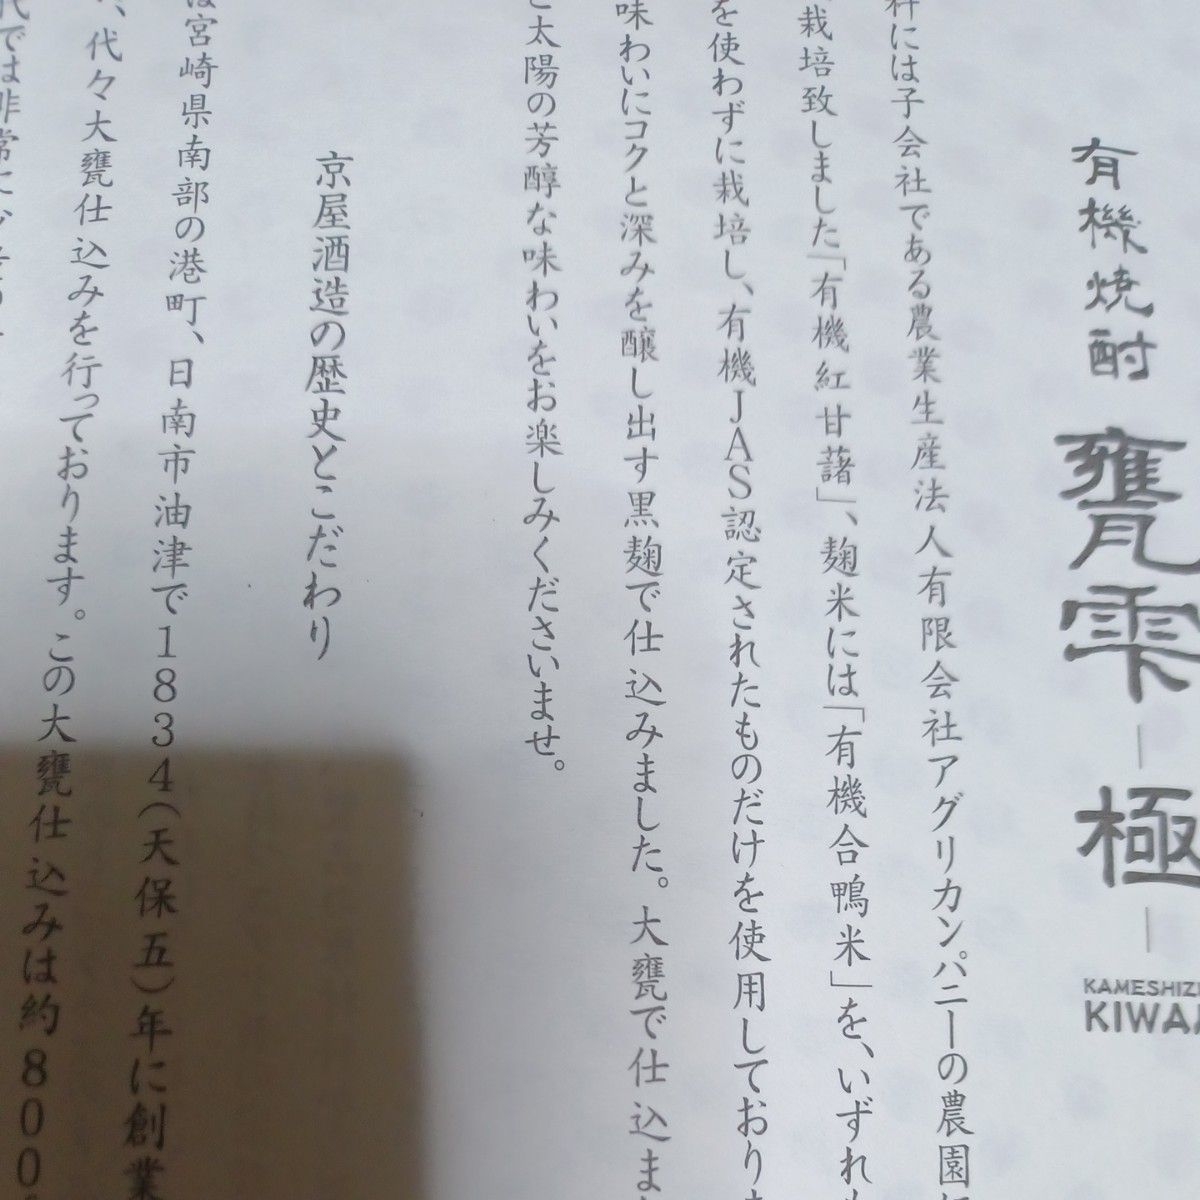 有機焼酎
甕雫
極
KAMESHIZU
KIWAM
料には子会社である農業生産法人有限会社アグリカンパニーの農園に
栽培致しました「有機紅甘藷」、麹米には「有機合鴨米」を、いずれも
を使わずに栽培し、有機JAS認定されたものだけを使用しておりま
味わいにコクと深みを醸し出す黒麹で仕込みました。大甕で仕込まれ
と太陽の芳醇な味わいをお楽しみくださいませ。
京屋酒造の歴史とこだわり
は宮崎県南部の港町、日南市油津で1834(天保五)年に創業
、代々大甕仕込みを行っております。この大甕仕込みは約800
代では非常に